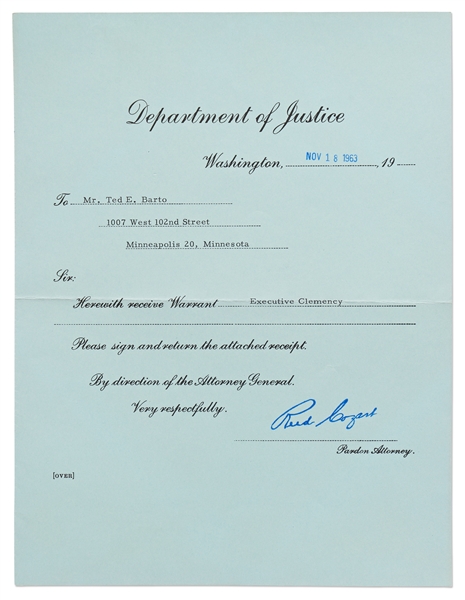 Department of Justice
Washington, NOV 18 1963, 19
To Mr. Ted E. Barto
1007 West 102nd Street
Minneapolis 20, Minnesota
Sir:
Herewith receive Warrant Executive Clemency
Please sign and return the attached receipt.
By direction of the Attorney General.
Very respectfully.
Reed Cozart
Pardon Attorney.
[OVER]